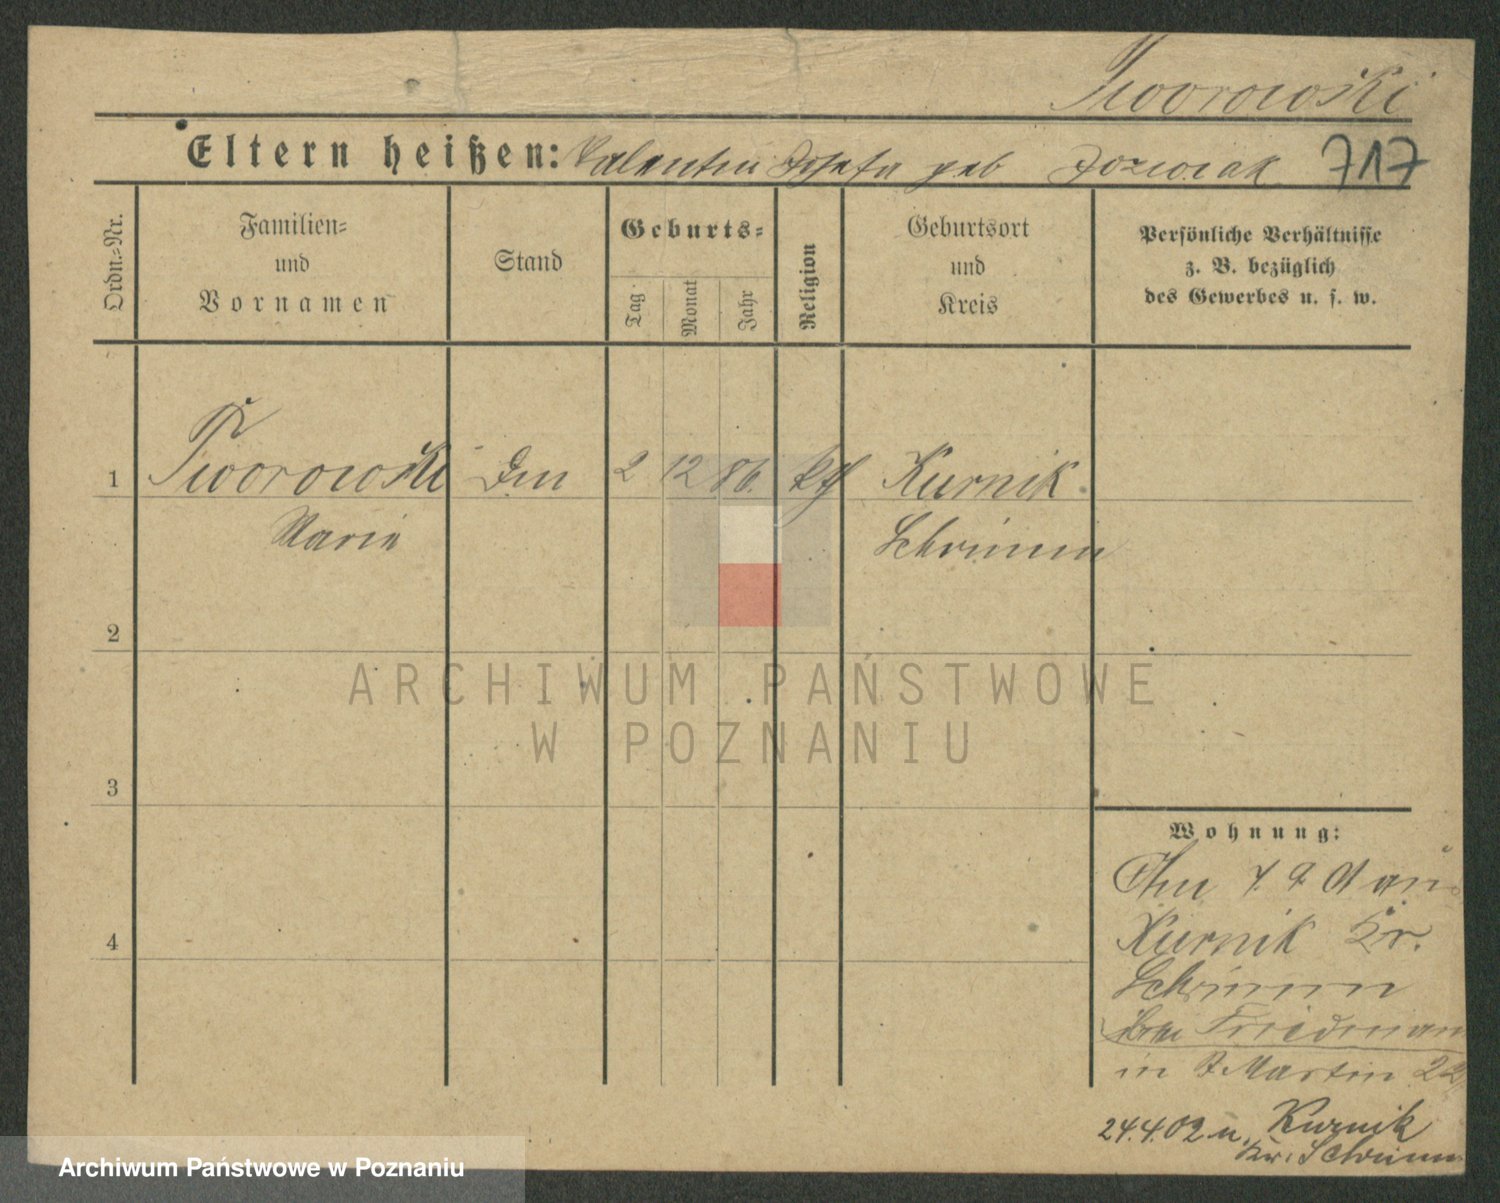 Tworowski
Eltern heißen: Valentin Josefa geb Jozwiak 717
Ordn.-Nr.
Familien-
und
Vornamen
Stand
Geburts-
Tag
Monat
Jahr
Religion
Geburtsort
und
Kreis
Persönliche Verhältnisse
z. B. bezüglich
des Gewerbes u. s. w.
1 Tworowski 2 12 86. kth Kurnik
Marie Schrimm
2
3
4
ARCHIWUM PAŃSTWOWE
W POZNANIU
Wohnung:
Kurnik Kr.
Schrimm
bei Friedman
in St Martin 22
24.4.02 n. Kurnik
Kr. Schrimm
Archiwum Państwowe w Poznaniu